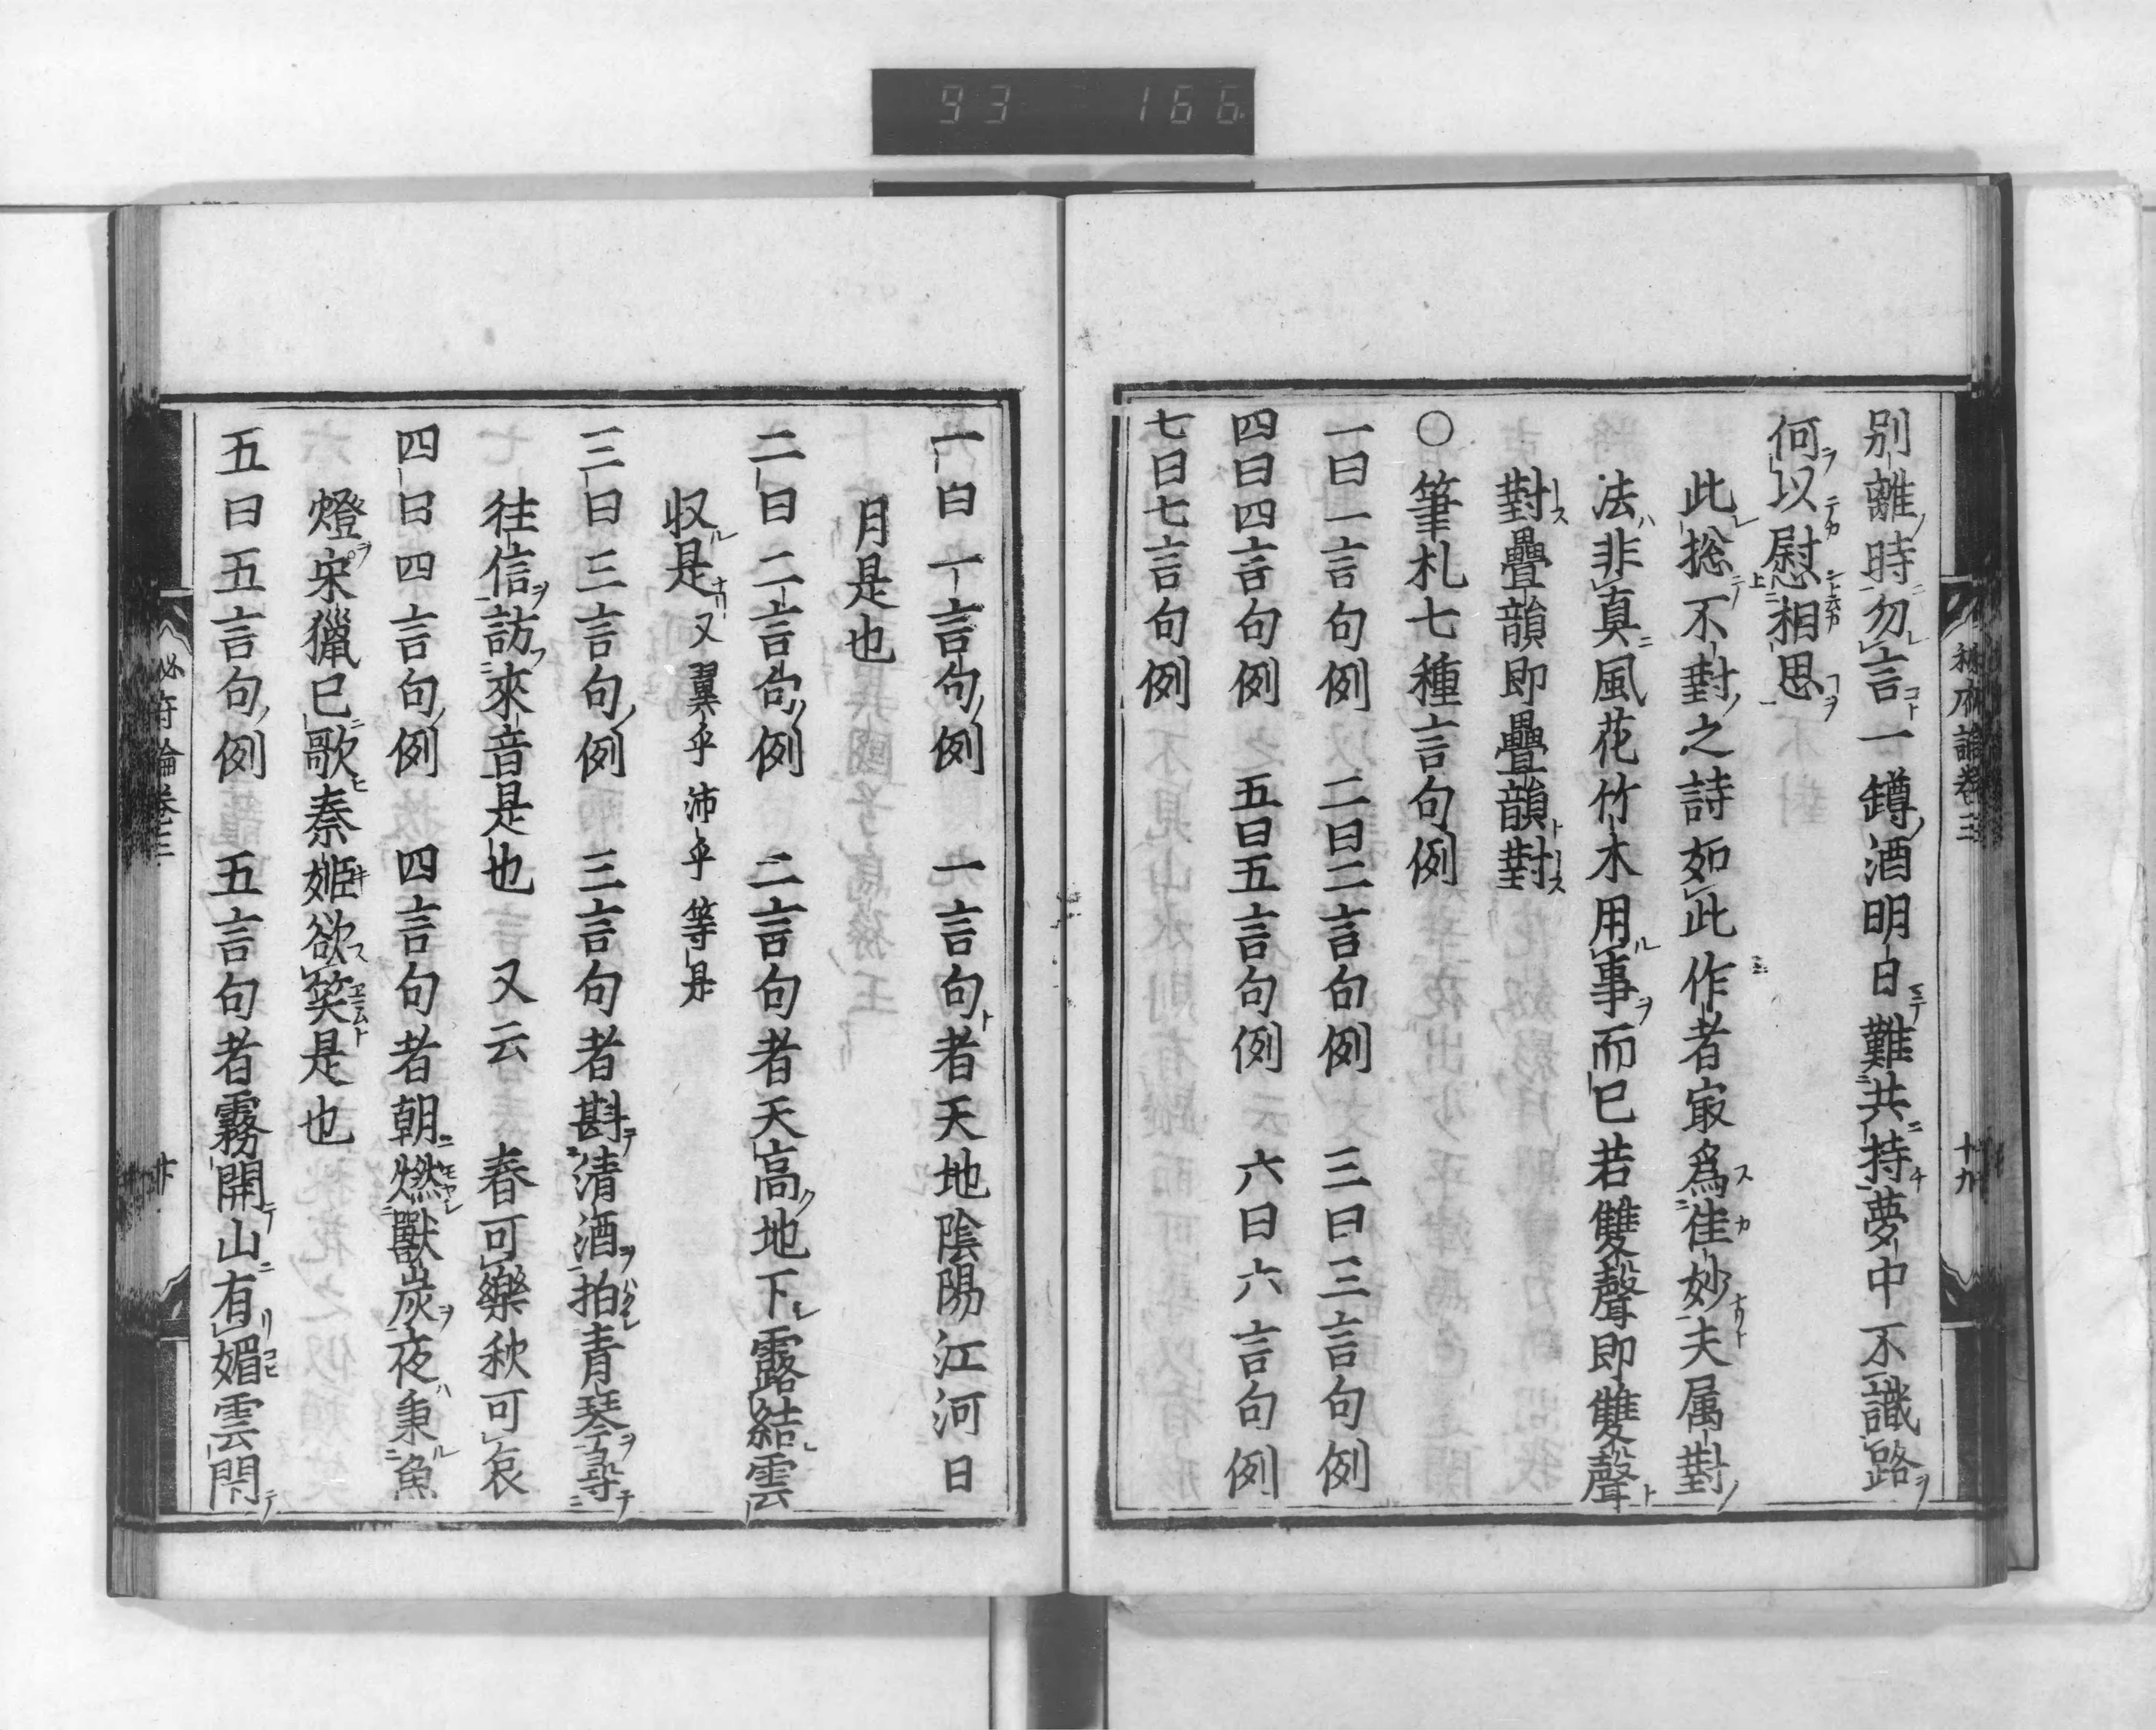 93 166
秘府論卷三
十九
別離時勿言一罇酒明日難共持夢中不識路
何以慰相思
此総不對之詩如此作者冣爲佳妙夫属對
法非真風花竹木用事而已若雙聲即雙聲
對疊韻即疊韻對
○筆札七種言句例
一曰一言句例 二曰二言句例 三曰三言句例
四曰四言句例 五曰五言句例 六曰六言句例
七曰七言句例
一曰一言句例 一言句者天地陰陽江河日
月是也
二曰二言句例 二言句者天高地下露結雲
収是又翼乎沛乎等是
三曰三言句例 三言句者斟清酒拍青琴尋
往信訪來音是也 又云 春可樂秋可哀
四曰四言句例 四言句者朝燃獸炭夜秉魚
燈宋獵已歌秦姬欲笑是也
五曰五言句例 五言句者霧開山有媚雲閇
必府論卷三
廿